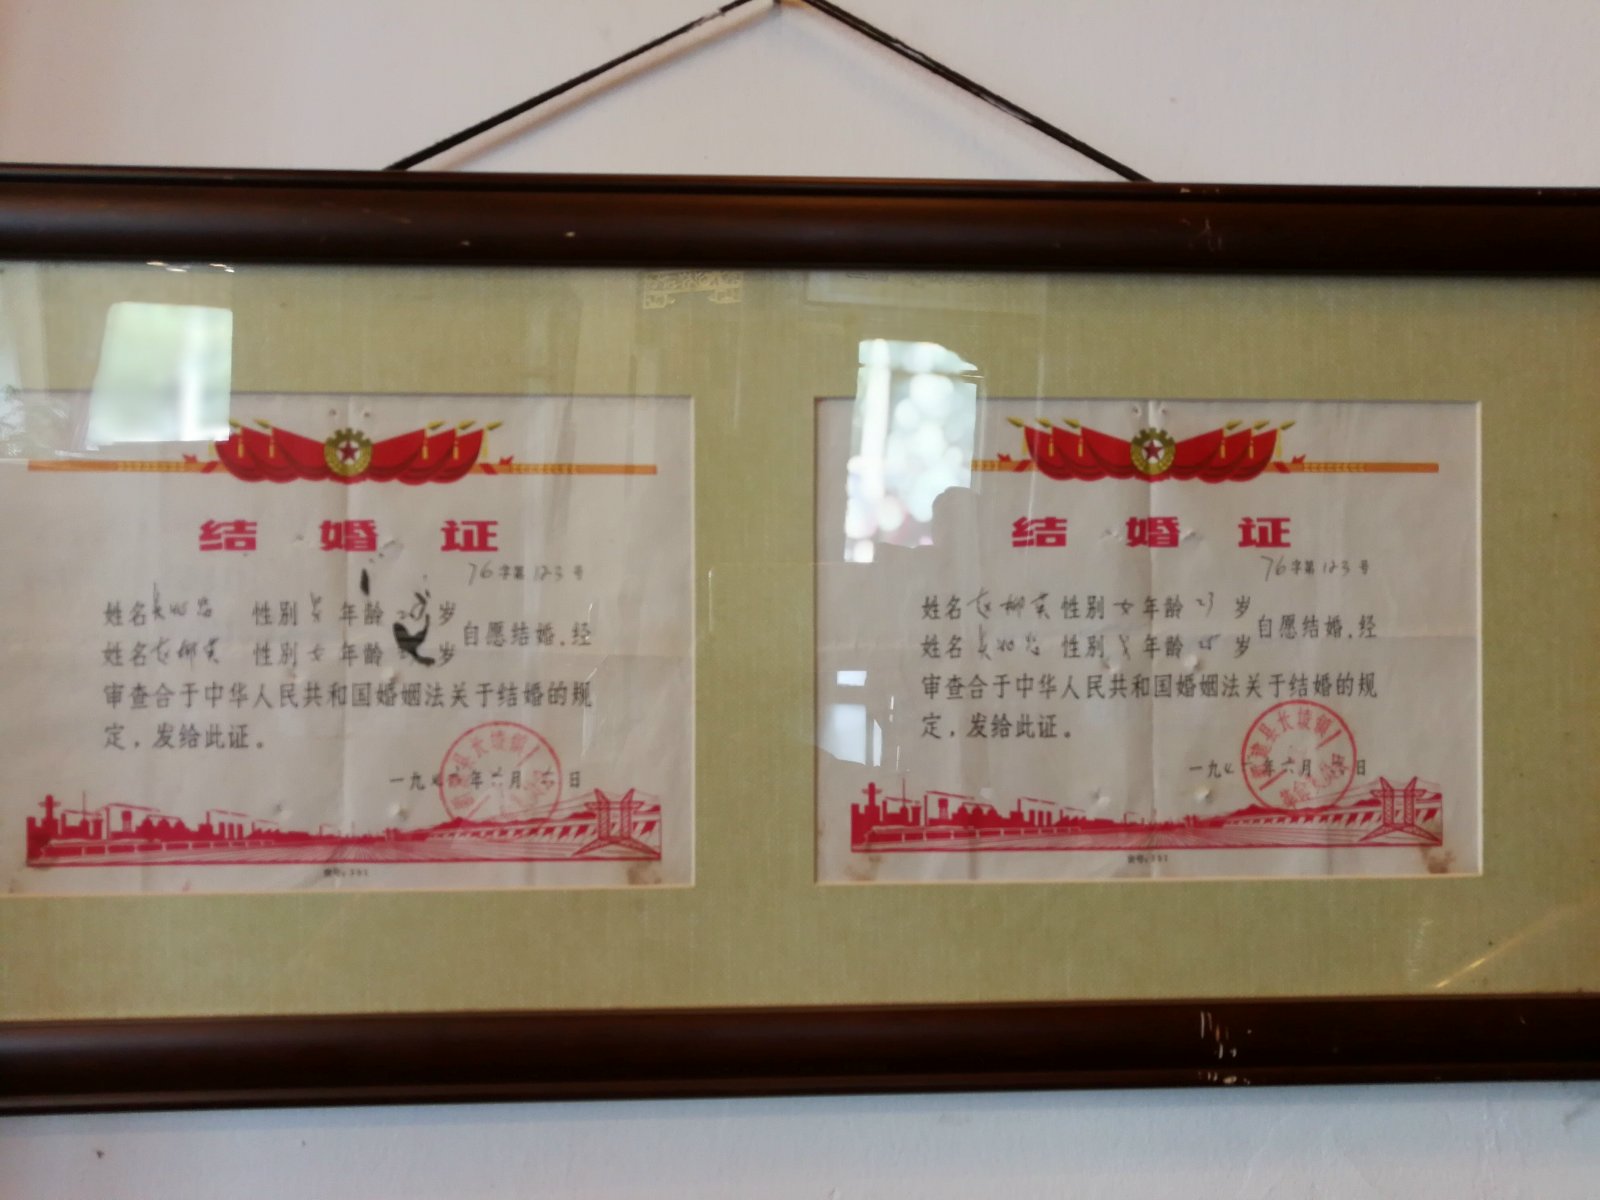 结婚证
76字第123号
姓名 性别 男 年龄 岁
姓名 赵柳英 性别 女 年龄 岁
自愿结婚,经
审查合于中华人民共和国婚姻法关于结婚的规
定,发给此证。
一九七六年六月六日
结婚证
76字第123号
姓名 赵柳英 性别 女 年龄 23 岁
姓名 性别 男 年龄 25 岁
自愿结婚,经
审查合于中华人民共和国婚姻法关于结婚的规
定,发给此证。
一九七 年六月 日